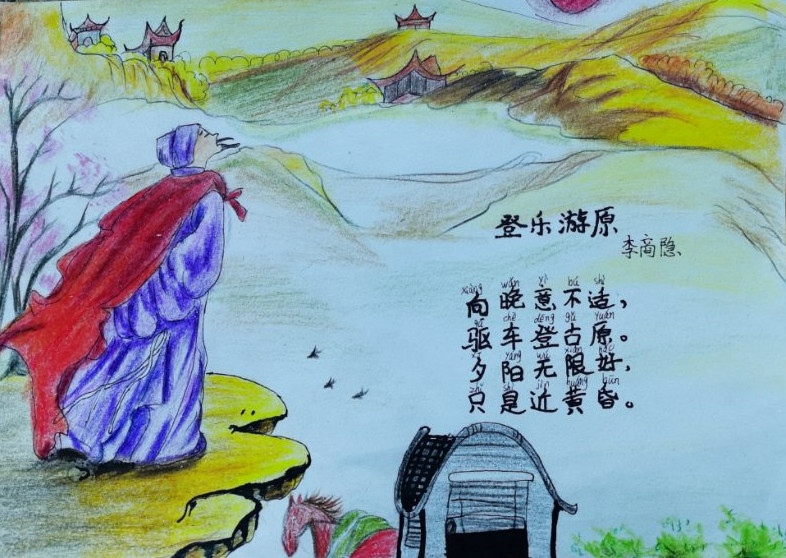 登乐游原
李商隐
xiàng wǎn yì bú shì
向晚意不适，
qū chē dēng gǔ yuán
驱车登古原。
xī yáng wú xiàn hǎo
夕阳无限好，
zhǐ shì jìn huáng hūn
只是近黄昏。